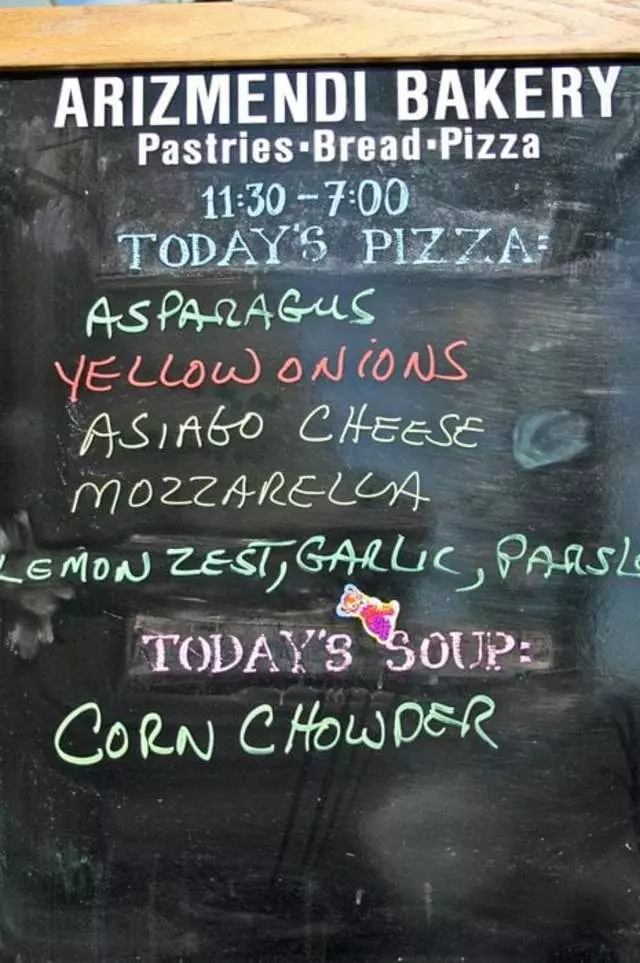 ARIZMENDI BAKERY
Pastries·Bread·Pizza
11:30-7:00
TODAY'S PIZZA:
ASPARAGUS
YELLOW ONIONS
ASIAGO CHEESE
MOZZARELLA
LEMON ZEST, GARLIC, PARSLE
TODAY'S SOUP:
CORN CHOWDER